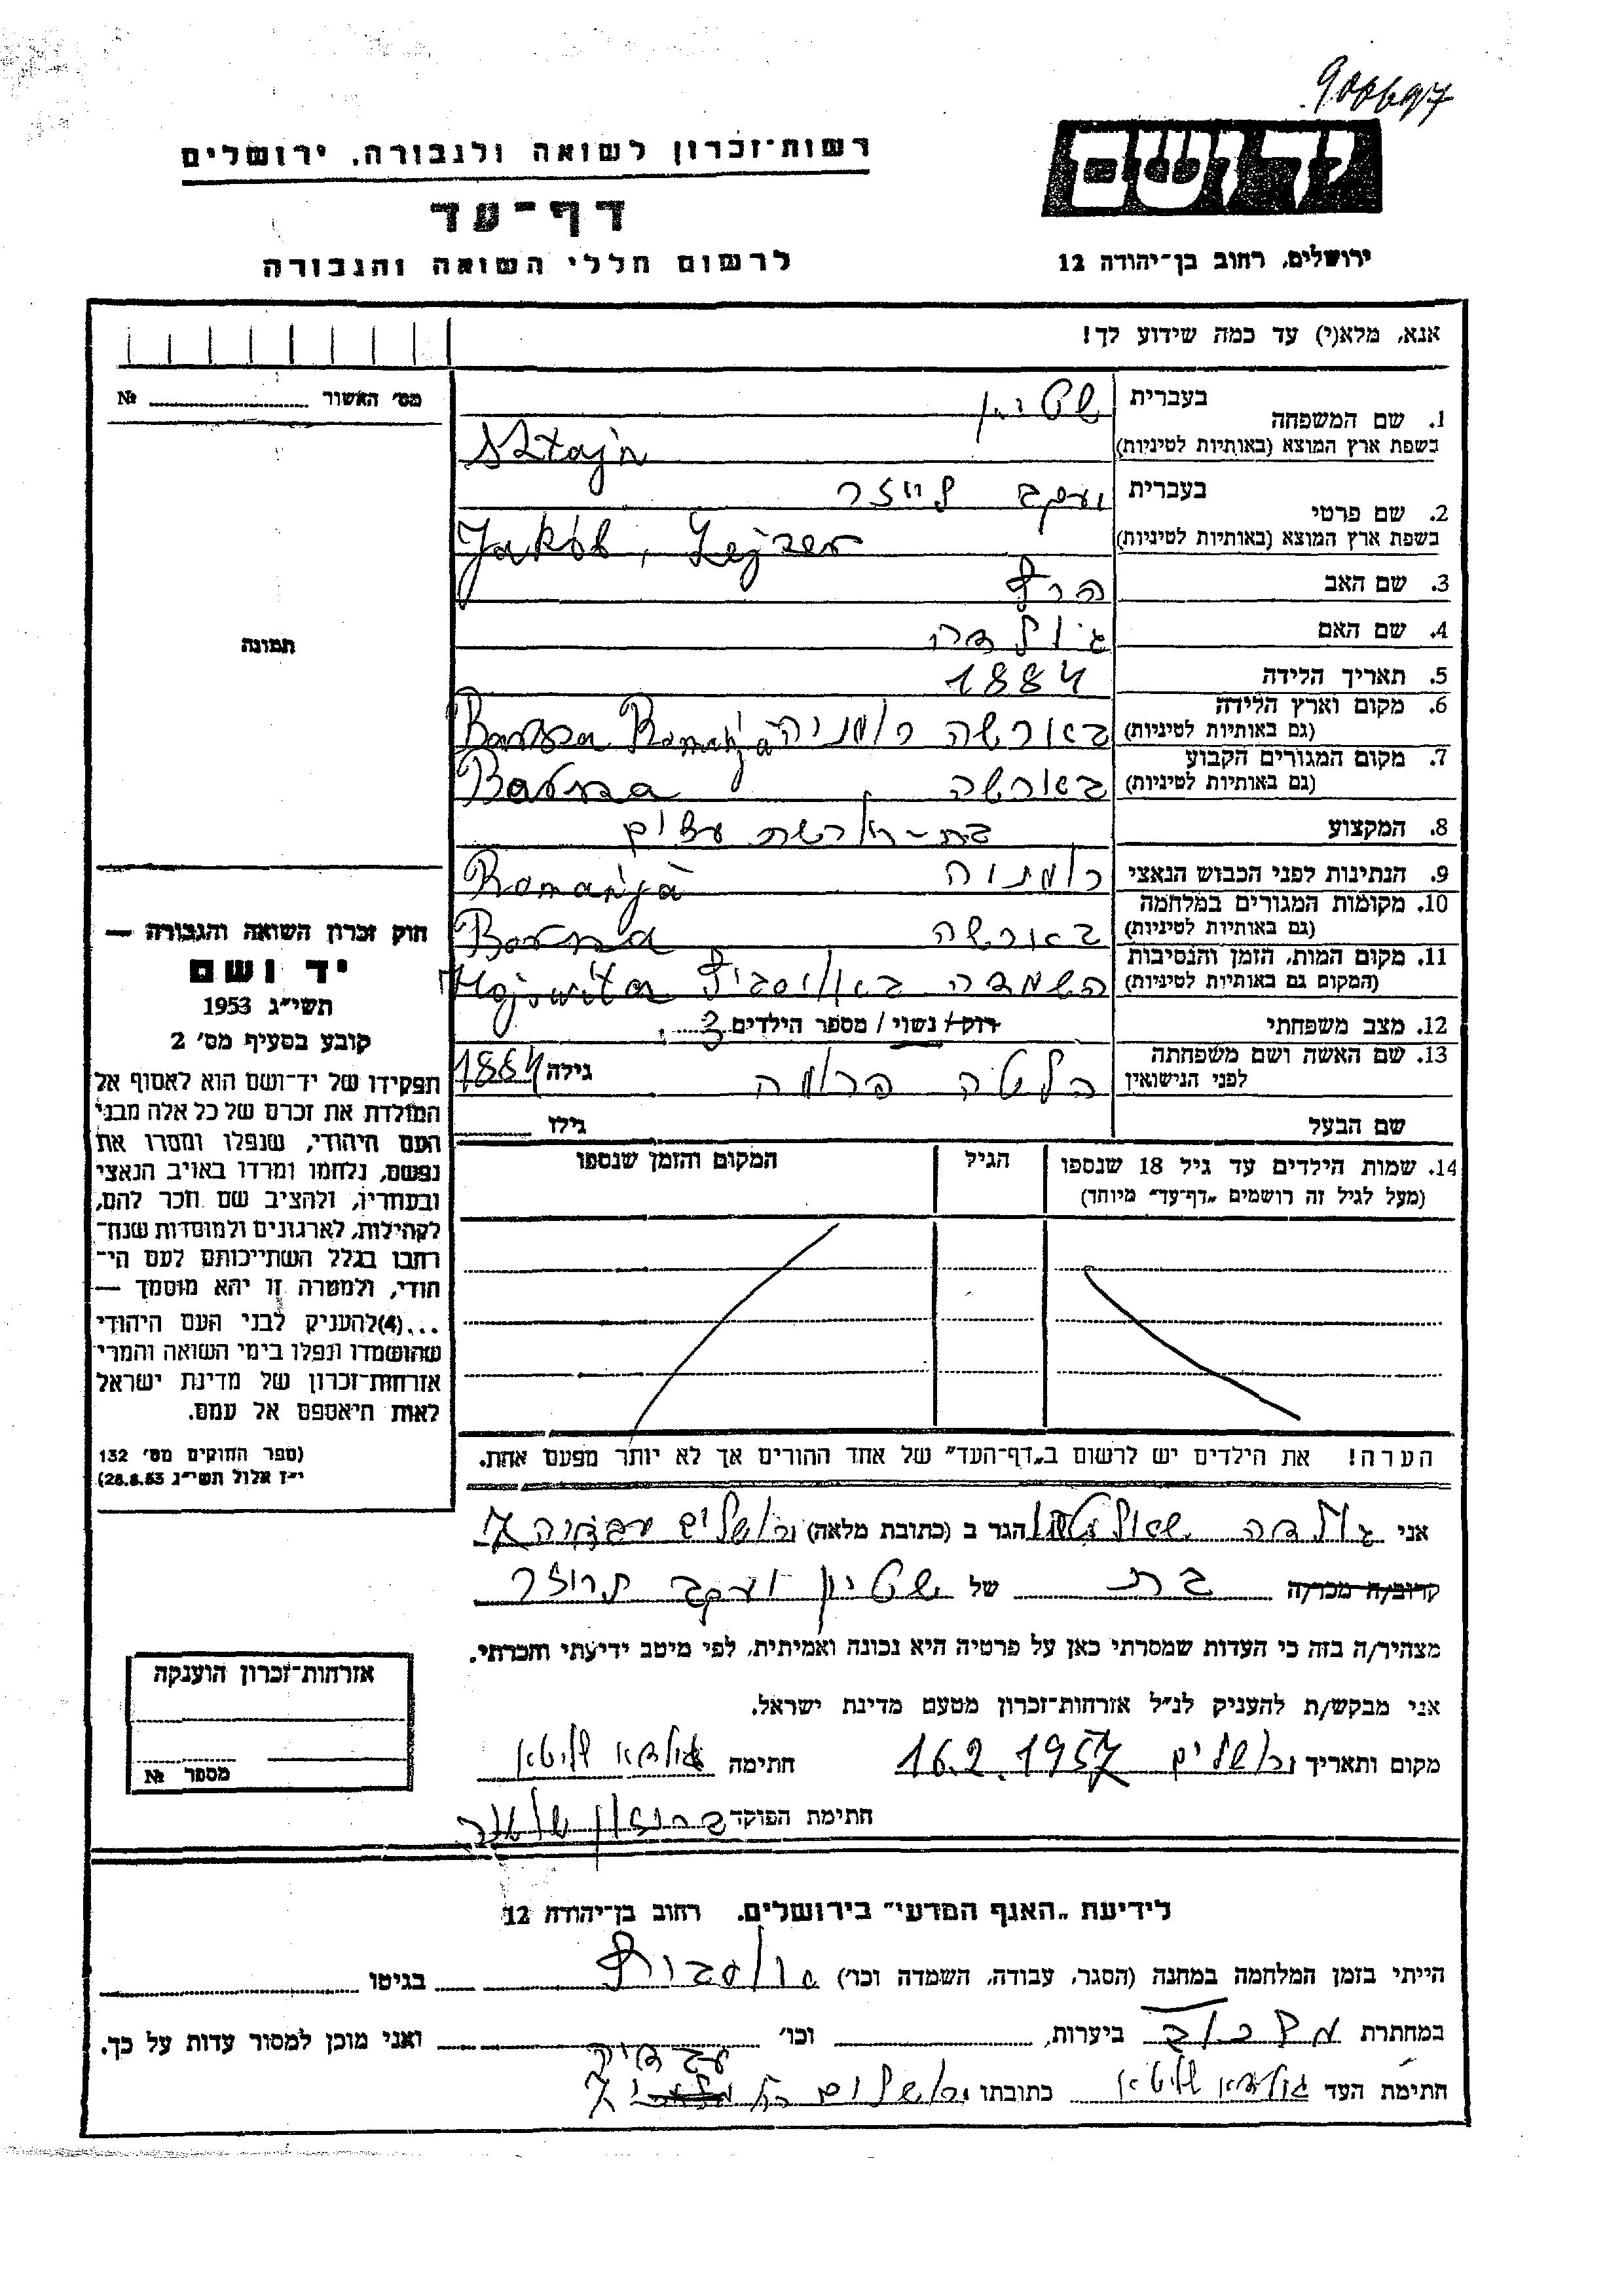 900697
יד ושם
רשות־זכרון לשואה ולגבורה, ירושלים
דף־עד
לרשום חללי השואה והגבורה
ירושלים, רחוב בן־יהודה 12
אנא, מלא(י) עד כמה שידוע לך!
מס׳ האשור № 
1. שם המשפחה בעברית שטיין
בשפת ארץ המוצא (באותיות לטיניות) Sztajn
2. שם פרטי בעברית יעקב לייזר
בשפת ארץ המוצא (באותיות לטיניות) Jakób, Lejzer
3. שם האב הרש
4. שם האם גולדה
5. תאריך הלידה 1884
6. מקום וארץ הלידה
(גם באותיות לטיניות) בארשה רומניה Barsza Romańja
7. מקום המגורים הקבוע
(גם באותיות לטיניות) בארשה Barsza
8. המקצוע בית-חרושת עצים
9. הנתינות לפני הכבוש הנאצי רומניה Romańja
10. מקומות המגורים במלחמה
(גם באותיות לטיניות) בארשה Barsza
11. מקום המות, הזמן והנסיבות
(המקום גם באותיות לטיניות) השמדה באושביץ
12. מצב משפחתי רוק / נשוי / מספר הילדים 3
13. שם האשה ושם משפחתה
לפני הנישואין גילה 1884
שם הבעל גילו
14. שמות הילדים עד גיל 18 שנספו
(מעל לגיל זה רושמים „דף־עד” מיוחד)
הגיל
המקום והזמן שנספו
הערה! את הילדים יש לרשום ב„דף־העד” של אחד ההורים אך לא יותר מפעם אחת.
תמונה
חוק זכרון השואה והגבורה —
יד ושם
תשי״ג 1953
קובע בסעיף מס׳ 2
תפקידו של יד־ושם הוא לאסוף אל
המולדת את זכרם של כל אלה מבני
העם היהודי, שנפלו ומסרו את
נפשם, נלחמו ומרדו באויב הנאצי
ובעוזריו, ולהציב שם וזכר להם,
לקהילות, לארגונים ולמוסדות שנח־
רבו בגלל השתייכותם לעם הי־
הודי, ולמטרה זו יהא מוסמך —
...(4) להעניק לבני העם היהודי
שהושמדו ונפלו בימי השואה והמרי
אזרחות־זכרון של מדינת ישראל
לאות היאספם אל עמם.
(ספר החוקים מס׳ 132
י״ז אלול תשי״ג 28.8.53)
אני גולדה הגר ב (כתובת מלאה) ירושלים 7
קרוב/ה מכר/ה בת של שטיין יעקב
מצהיר/ה בזה כי העדות שמסרתי כאן על פרטיה היא נכונה ואמיתית, לפי מיטב ידיעתי והכרתי.
אני מבקש/ת להעניק לנ״ל אזרחות־זכרון מטעם מדינת ישראל.
מקום ותאריך ירושלים 16.2.1957 חתימה
חתימת הפוקד
אזרחות־זכרון הוענקה
מספר №
לידיעת „האגף המדעי” בירושלים, רחוב בן־יהודה 12
הייתי בזמן המלחמה במחנה (הסגר, עבודה, השמדה וכו׳) בגיטו
במחתרת ביערות, וכו׳ ואני מוכן למסור עדות על כך.
חתימת העד כתובתו ירושלים 7